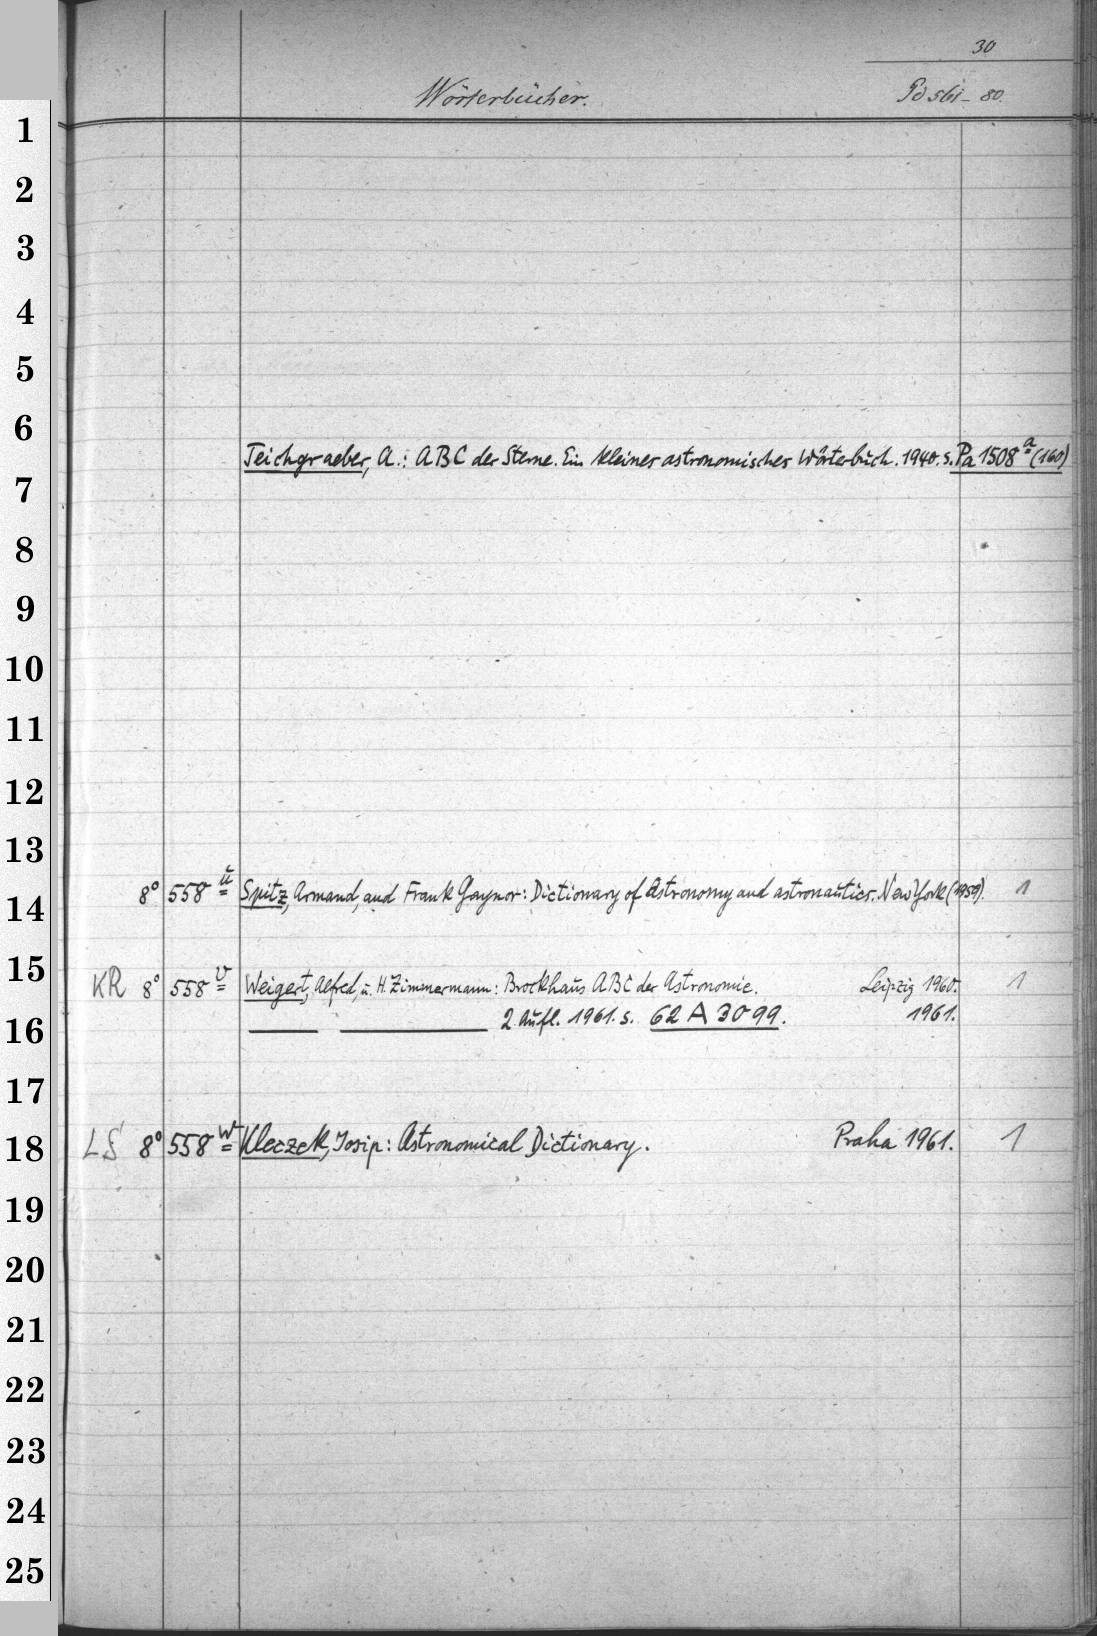 30
Wörterbücher. Pd 561-80.
1
2
3
4
5
6
Teichgraeber, A.: ABC der Sterne. Ein kleines astronomisches Wörterbuch. 1940. s. Pa 1508 a (160)
7
8
9
10
11
12
13
8° 558 u Spitz, Armand, and Frank Gaynor: Dictionary of Astronomy and astronautics. New York (1959). 1
14
15
KR 8° 558 v Weigert, Alfred, u. H. Zimmermann: Brockhaus ABC der Astronomie. Leipzig 1960. 1
2. Aufl. 1961. s. 62 A 3099. 1961.
16
17
LS 8° 558 w Kleczek, Josip: Astronomical Dictionary. Praha 1961. 1
18
19
20
21
22
23
24
25